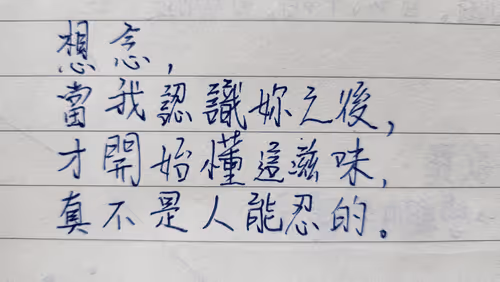 想念,
當我認識妳之後,
才開始懂這滋味,
真不是人能忍的。